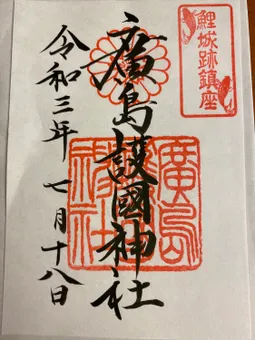 鯉城跡鎮座
廣島護國神社
廣島護國神社
令和三年 七月十八日